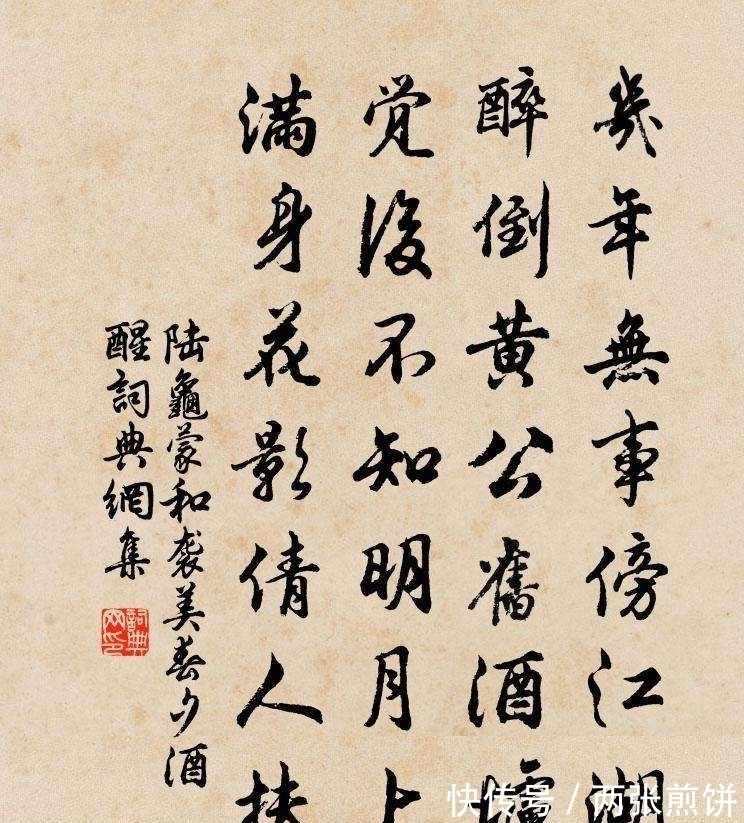 幾年無事傍江湖
醉倒黄公舊酒
觉後不知明月上
滿身花影倩人扶
陆龜蒙和袭美春夕酒
醒詞典網集
詞典
快传号 / 两张煎饼